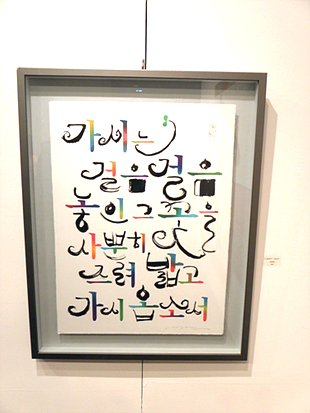 가시는
걸음걸음
놓인 그 꽃을
사뿐히
즈려 밟고
가시옵소서